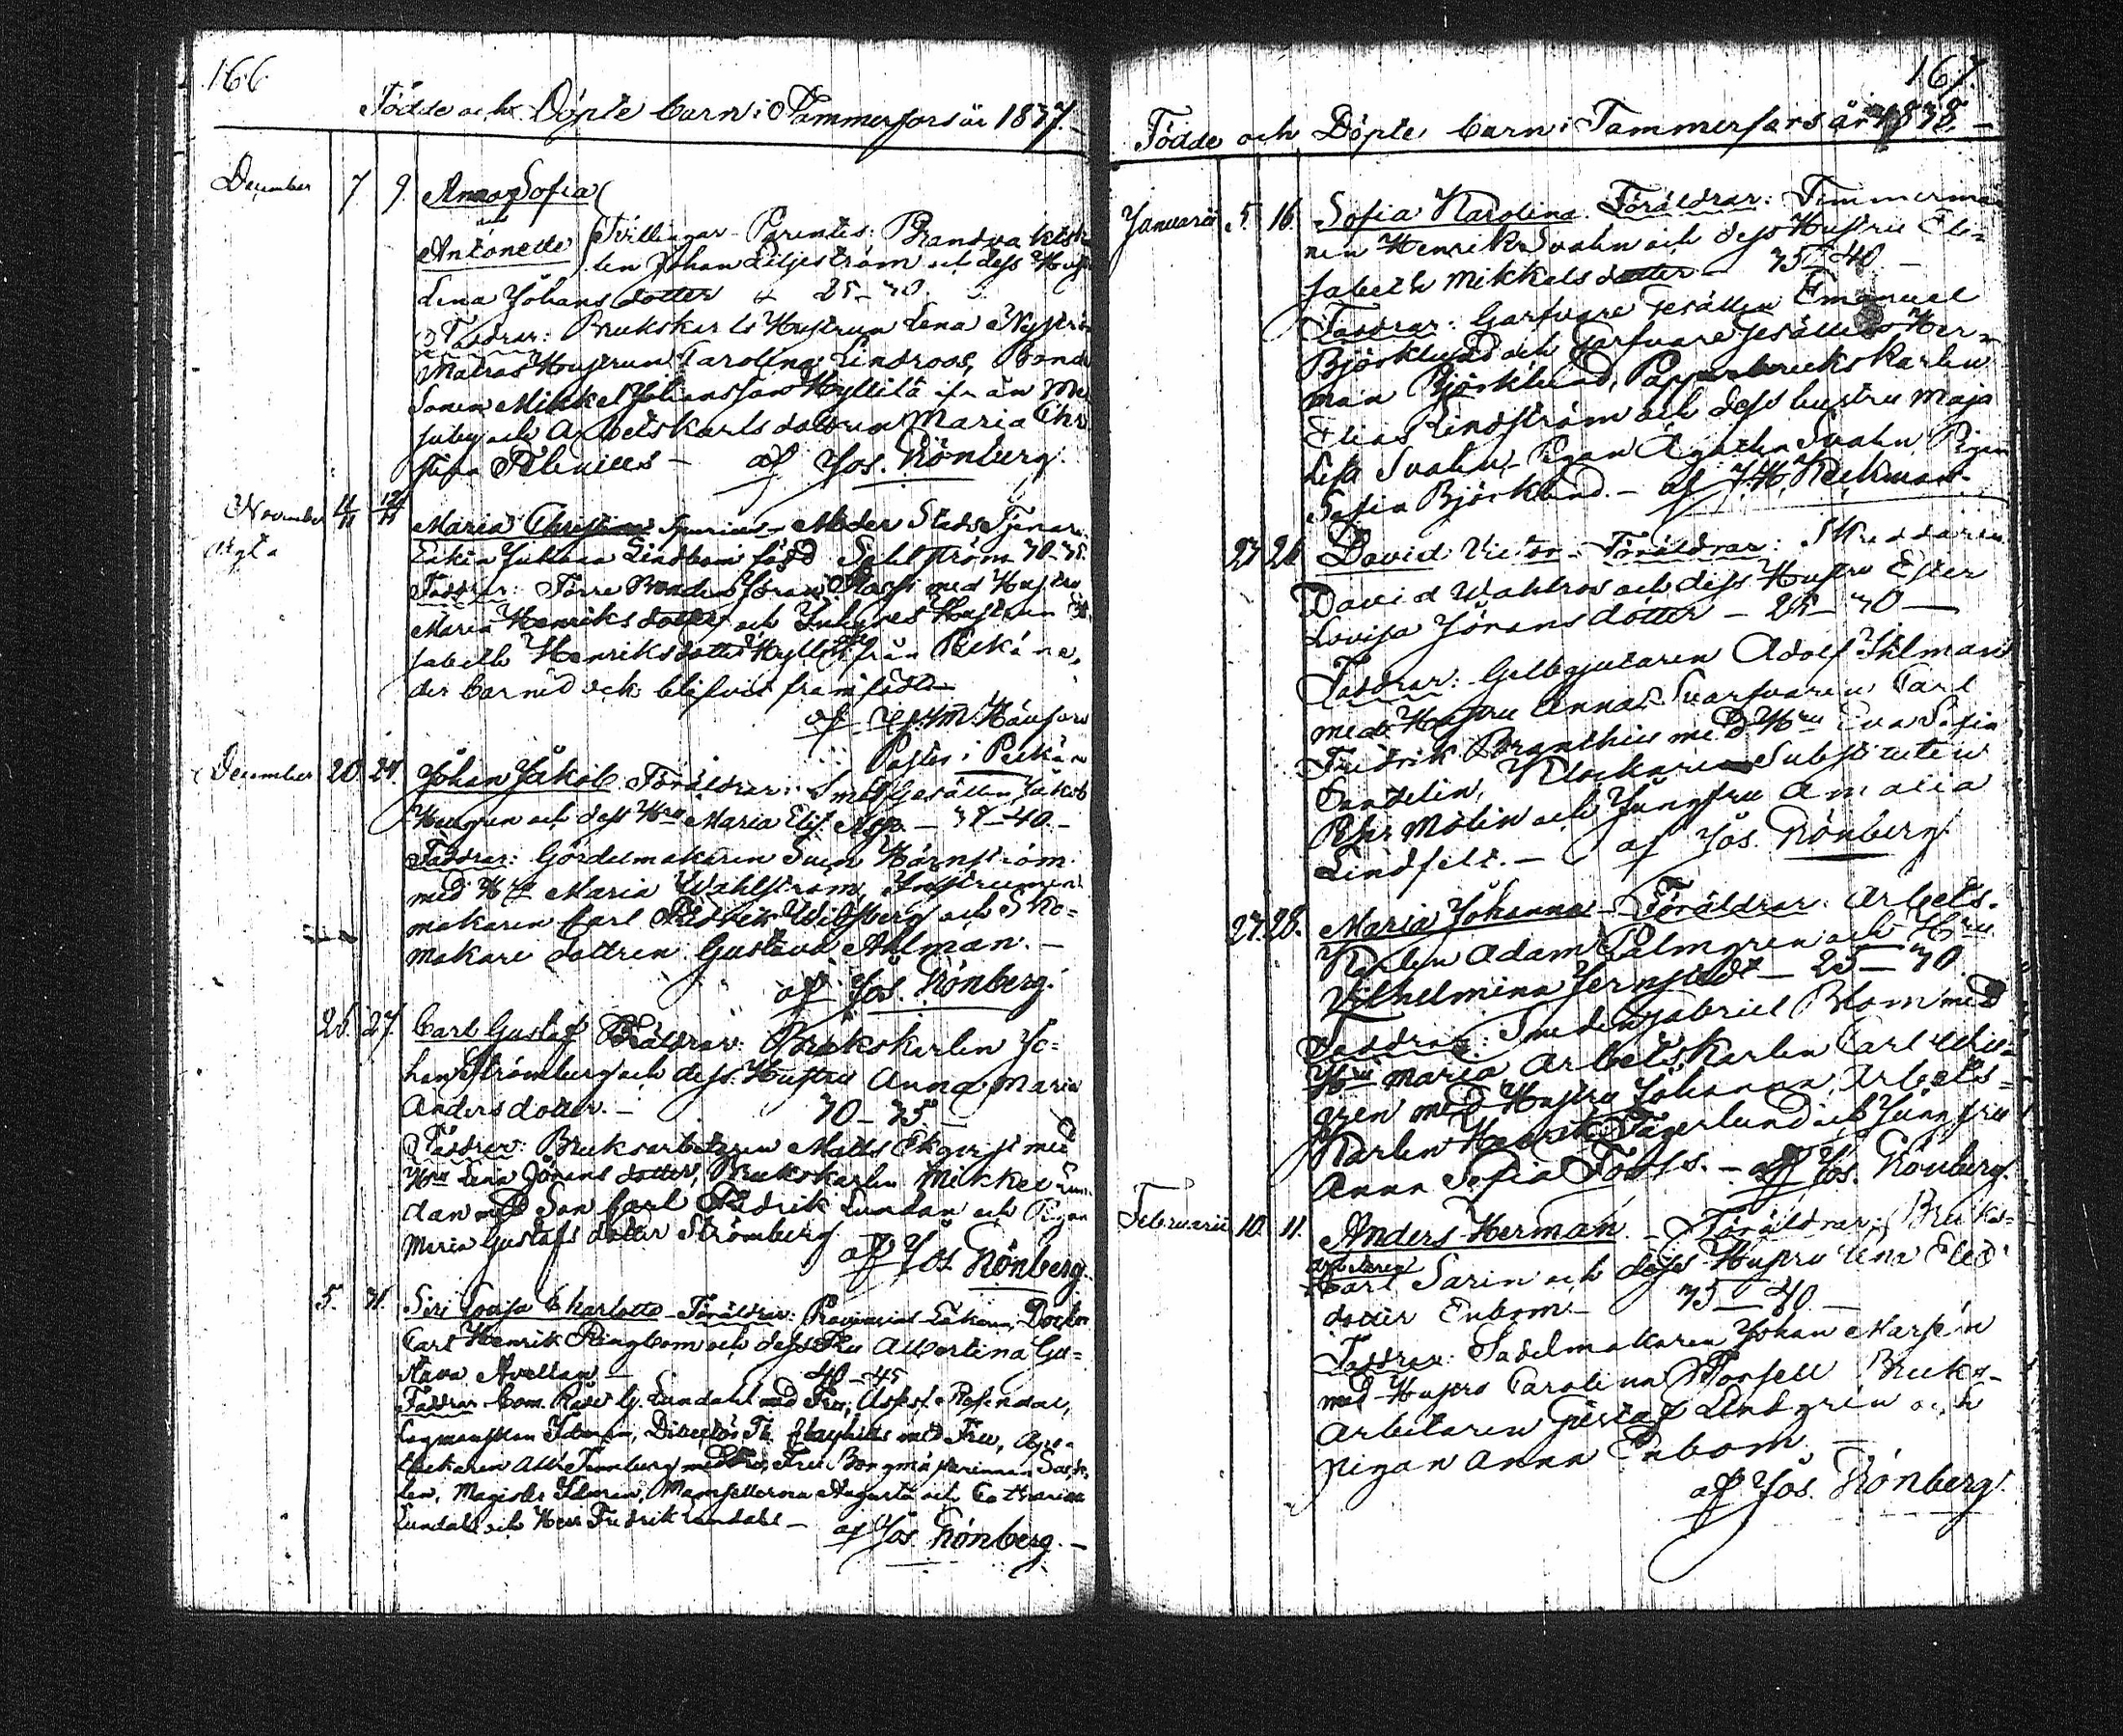 166
Födde och Döpte barn i Tammerfors år 1837.
December 7 9. Anna Sofia
och
Antonette Tvillingar - Parentes: Brandvaktska
len Johan Liljeström och dess Hustru
Lena Johansdotter 25-30.
Faddrar: Brukskarls Hustrun Lena Nyström
Hustrun Carolina Lindroos, Bonde
Sonen Mikkel Johansson Hyllilä ifrån Me
suby och Arbetskarls dottren Maria Chri
stina - af Jos. Grönberg.
November 11/11 12/11 Maria Christina Spuria - Moder Stads Tjenare
Enkan Johanna Lindbom född Sahlström 30-35.
Faddrar: Förre Bonden Jöran med Hustru
Maria Henriksdotter och Inhyses Hustrun Eli
sabeth Henriksdotter från Pelkäne,
der barnet ock blifvit framfödt.
af
Pastor i Pelkäne
December 20 24. Johan Jakob Föräldrar: Smed Gesällen Jakob
och dess Hru Maria Elis. Asp. - 40. -
Faddrar: Gördelmakaren Sven Hörnström
med Hru Maria Wahlström, Instrument
makaren Carl Fredrik och Sko=
makare dottren Gustava Ahlman. -
af Jos. Grönberg.
26. 27. Carl Gustaf Föräldrar: Brukskarlen Jo=
han Strömberg och dess Hustru Anna Maria
Andersdotter. - 30-35 -
Faddrar: Bruksarbetaren Matts Ekqvist med
Hru Lena Jörans dotter, Brukskarlen Mikkel Lun
dan med Son Carl Fredrik Lundan och Pigan
Maria Gustafs dotter Strömberg
af Jos Grönberg.
5. 31. Siri Lovisa Charlotta - Föräldrar: Provincial Läkaren, Doctor
Carl Henrik Ringbom och dess Fru Albertina Gu=
stava Avellan - 40-45
Faddrar Com. Rådet G. Lundahl med Fru, Rosendal,
Lagmanskan Idman, Director med Fru, Apo=
thekaren Alb. Tennberg med Fru, Fru Borgmästarinnan
len, Magister Idman, Mamsellerna Augusta och Catharina
Lundahl och Herr Fredrik Lundahl - af Jos. Grönberg. -
167.
Födde och Döpte barn i Tammerfors år 1838. -
Januarii 5. 16. Sofia Karolina. Föräldrar: Timmerman
nen Henrik Svahn och dess Hustru Eli=
sabeth Mikkelsdotter - 35-40 -
Faddrar: Garfvare Gesällen Emanuel
Björklund och Garfvare gesällen Her=
man Björklund, Pappersbrukskarlen
Elias Lindström och dess hustru Maja
Lisa Svahn, Pigan Agatha Svahn Pigan
Sofia Björklund. - af
23 26 David Victor - Föräldrar: Skräddaren
David Wahlros och dess Hustru Ester
Lovisa Jöransdotter - 25-30 -
Faddrar: Gelbgjutaren Adolf Ihlman
med Hustru Anna, Svarfvaren Carl
Fredrik med Hru Eva Sofia
Sandelin, Klockaren Substituten
Molin och Jungfru Amalia
Lindfelt. - af Jos. Grönberg.
27. 28. Maria Johanna - Föräldrar: Arbets-
Karlen Adam Palmgren och Hru
Vilhelmina - 25-30
Faddrar: Smeden Gabriel Blom med
Hru Maria Arbetskarlen Carl
gren med Hustru Johanna, Arbets=
Karlen Henrik Fagerlund och Jungfru
Anna Sofia - af Jos. Grönberg.
Februarii 10. 11. Anders Herman - Föräldrar: Bruks=
arbetaren
Carl Sarin och dess Hustru Lena
dotter Enbom - 35-40 -
Faddrar: Sadelmakaren Johan
med Hustru Carolina Forsell Bruks-
Arbetaren Gustaf Lindgren och
pigan Anna Enbom -
af Jos. Grönberg.